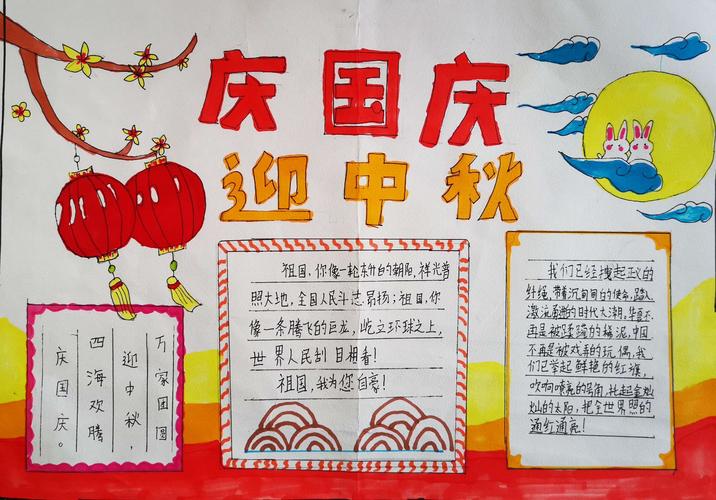 庆国庆
迎中秋
万家团圆
迎中秋,
四海欢腾
庆国庆。
祖国,你像一轮东升的朝阳,祥光普
照大地,全国人民斗志昂扬;祖国,你
像一条腾飞的巨龙,屹立环球之上,
世界人民刮目相看!
祖国,我为您自豪!
我们已经拽起正义的
纤绳,带着沉甸甸的使命,踏入
激流的时代大潮,华夏不
再是被蹂躏的稀泥,中国
不再是被戏弄的玩偶,我
们已举起鲜艳的红旗,
吹响嘹亮的号角,托起金灿
灿的太阳,把全世界照的
通红通亮!